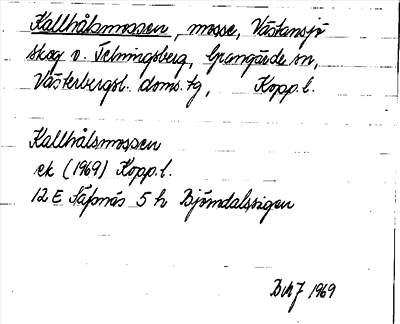 Kallhålsmossen, mosse, Västansjö
skog v. Telningsberg, Grangärde sn,
Västerbergsl. doms. tg, Kopp. l.
Kallhålsmossen
ek (1969) Kopp. l.
12 E Säfsnäs 5 h Björndalssigen
1969